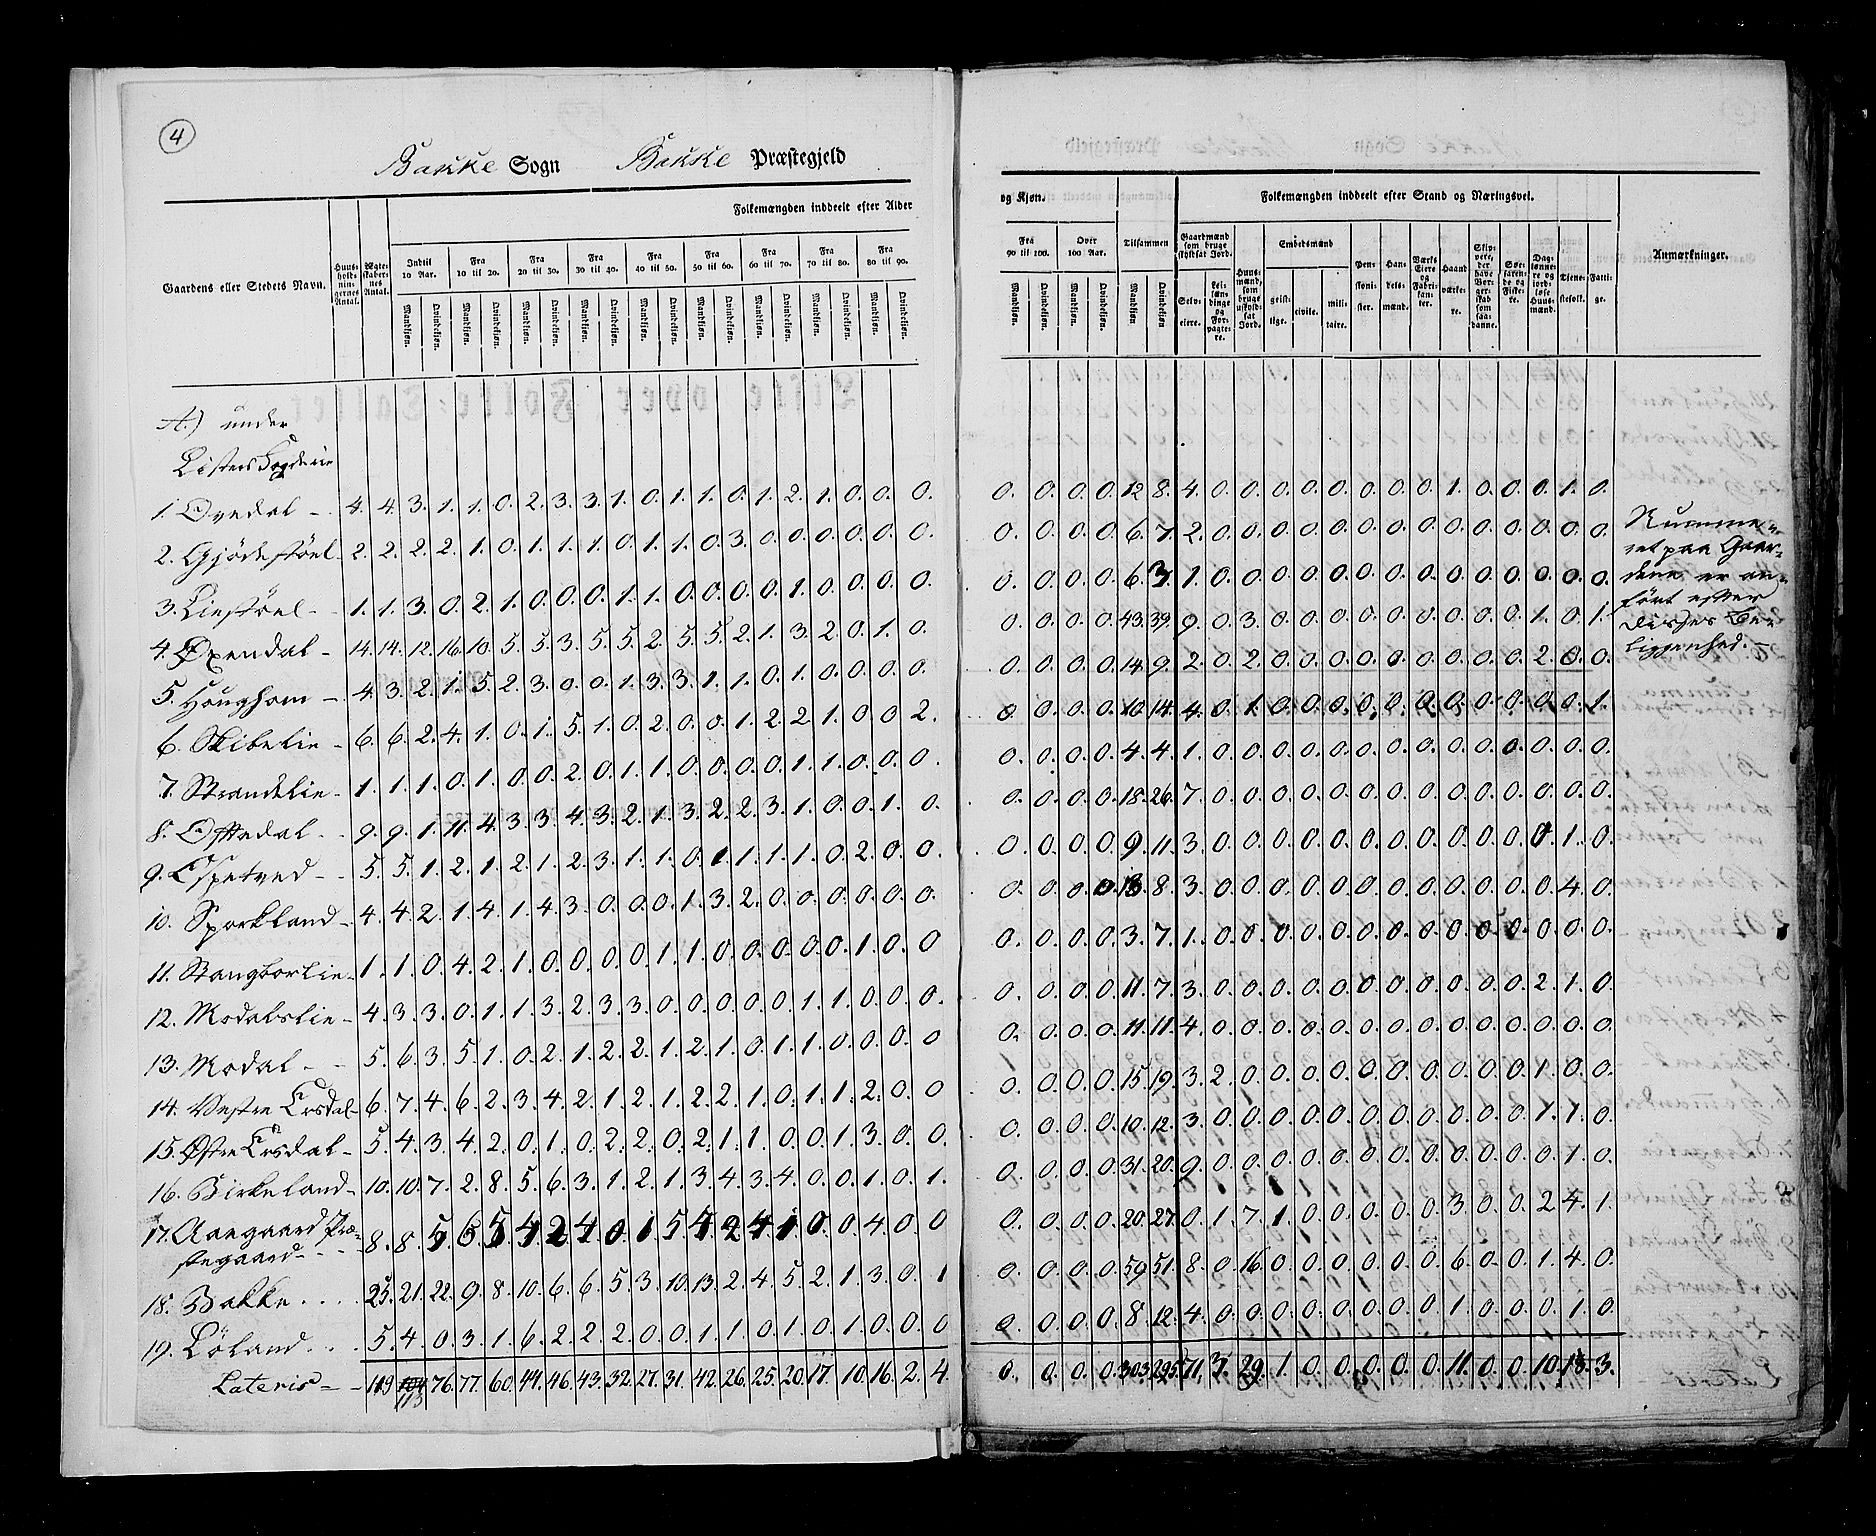 4
Bakke Sogn Bakke Præstegjeld
Gaardens eller Stedets Navn.
Huus-holdnin-gernes Antal.
Ægte-skaber-nes Antal.
Folkemængden inddeelt efter Alder
Indtil 10 Aar. Fra 10 til 20. Fra 20 til 30. Fra 30 til 40. Fra 40 til 50. Fra 50 til 60. Fra 60 til 70. Fra 70 til 80. Fra 80 til 90.
Mandkjøn. Qvindekjøn. Mandkjøn. Qvindekjøn. Mandkjøn. Qvindekjøn. Mandkjøn. Qvindekjøn. Mandkjøn. Qvindekjøn. Mandkjøn. Qvindekjøn. Mandkjøn. Qvindekjøn. Mandkjøn. Qvindekjøn. Mandkjøn. Qvindekjøn.
A.) under
Listers Fogderie
1. Ovedal - 4. 4. 3. 1. 1. 0. 2. 3. 3. 1. 0. 1. 1. 0. 1. 2. 1. 0. 0. 0.
2. Gjödestöel - 2. 2. 2. 2. 1. 0. 1. 1. 1. 0. 1. 1. 0. 3. 0. 0. 0. 0. 0. 0.
3. Liestöel - 1. 1. 3. 0. 2. 1. 0. 0. 0. 1. 1. 0. 0. 0. 0. 1. 0. 0. 0. 0.
4. Øxendal - 14. 14. 12. 16. 10. 5. 5. 3. 5. 5. 2. 5. 5. 2. 1. 3. 2. 0. 1. 0.
5. Houghom - 4. 3. 2. 1. 5. 2. 3. 0. 0. 1. 3. 3. 1. 1. 0. 1. 0. 0. 0. 0.
6. Skibelie - 6. 6. 2. 4. 1. 0. 1. 5. 1. 0. 2. 0. 0. 1. 2. 2. 1. 0. 0. 2.
7. Strandelie - 1. 1. 1. 0. 1. 0. 0. 2. 0. 1. 1. 0. 0. 0. 0. 1. 1. 0. 0. 0.
8. Oftedal - 9. 9. 1. 11. 4. 3. 3. 4. 3. 2. 1. 3. 2. 2. 3. 1. 0. 0. 1. 0.
9. Espetved - 5. 5. 1. 2. 1. 2. 1. 2. 3. 1. 1. 0. 1. 1. 1. 1. 0. 2. 0. 0.
10. Sporkland - 4. 4. 2. 1. 4. 1. 4. 3. 0. 0. 0. 1. 3. 2. 0. 0. 0. 0. 0. 0.
11. Stangborlie - 1. 1. 0. 4. 2. 1. 0. 0. 0. 0. 1. 1. 0. 0. 0. 0. 0. 1. 0. 0
12. Modalslie - 4. 3. 3. 0. 1. 1. 3. 2. 3. 3. 0. 0. 0. 0. 0. 1. 1. 0. 0. 0.
13. Modal - 5. 6. 3. 5. 1. 0. 2. 1. 2. 2. 1. 2. 1. 0. 1. 1. 0. 0. 0. 0
14. Vestre Ersdal - 6. 7. 4. 6. 2. 3. 4. 2. 1. 2. 1. 2. 2. 1. 0. 1. 1. 2. 0. 0
15. Østre Ersdal - 5. 4. 3. 4. 2. 0. 1. 0. 2. 2. 0. 2. 1. 1. 0. 0. 1. 3. 0. 0.
16. Birkeland - 10. 10. 7. 2. 8. 5. 6. 3. 1. 2. 1. 3. 4. 3. 4. 0. 0. 1. 0. 1.
17. Aaegaard Præ-
stegaard - 8. 8. 5. 6. 5. 4. 2. 4. 0. 1. 5. 4. 2. 4. 1. 0. 0. 4. 0. 0
18. Bakke . . . 25. 21. 22. 9. 8. 10. 6. 6. 5. 3. 10. 13. 2. 4. 5. 2. 1. 3. 0. 1
19. Löland . . . 5. 4. 0. 3. 1. 6. 2. 2. 2. 0. 0. 1. 1. 0. 1. 0. 1. 0. 0. 0
Lateris - 119 113 76. 77. 60. 44. 46. 43. 32. 27. 31. 42. 26. 25. 20. 17. 10. 16. 2. 4.
og Kjøn.
Fra 90 til 100. Over 100 Aar. Tilsammen
Mandkjøn. Qvindekjøn. Mandkjøn. Qvindekjøn. Mandkjøn Qvindekjøn
Folkemængden inddeelt efter Stand og Næringsvei.
Gaardmænd som bruge skyldsat Jord.
Selv-eiere.
Lei-læn-dinge og For-pagte-re.
Huus-mænd, som bruge uskyld-sat Jord.
Embedsmænd
geist-lige. civile. mili-taire.
Pen-sioni-ster.
Han-dels-mænd.
Værks Eiere og Fabri-kan-ter.
Haand-værke-re.
Skip-pere, der have Bor-ger-skab som saa-danne.
Søe-faren-de og Fiske-re.
Dag-lønne-re og jord-løse Huus-mænd.
Tjene-stefolk.
Fatti-ge.
Anmærkninger.
0. 0. 0. 0. 12. 8. 4. 0. 0. 0. 0. 0. 0. 0. 0. 1. 0. 0. 0. 1. 0.
0. 0. 0. 0. 6. 7. 2. 0. 0. 0. 0. 0. 0. 0. 0. 0. 0. 0. 0. 0. 0.
0. 0. 0. 0. 6. 3. 1. 0. 0. 0. 0. 0. 0. 0. 0. 0. 0. 0. 0. 0. 0.
0. 0. 0. 0. 43. 39. 9. 0. 3. 0. 0. 0. 0. 0. 0. 0. 0. 0. 1. 0. 1.
0. 0. 0. 0. 14. 9. 2. 0. 2. 0. 0. 0. 0. 0. 0. 0. 0. 0. 2. 0. 0.
0. 0. 0. 0. 10. 14. 4. 0. 1. 0. 0. 0. 0. 0. 0. 0. 0. 0. 0. 0. 1.
0. 0. 0. 0. 4. 4. 1. 0. 0. 0. 0. 0. 0. 0. 0. 0. 0. 0. 0. 0. 0.
0. 0. 0. 0. 18. 26. 7. 0. 0. 0. 0. 0. 0. 0. 0. 0. 0. 0. 0. 0. 0.
0. 0. 0. 0. 9. 11. 3. 0. 0. 0. 0. 0. 0. 0. 0. 0. 0. 0. 0. 1. 0.
0. 0. 0. 0. 13. 8. 3. 0. 0. 0. 0. 0. 0. 0. 0. 0. 0. 0. 0. 4. 0.
0. 0. 0. 0. 3. 7. 1. 0. 0. 0. 0. 0. 0. 0. 0. 0. 0. 0. 0. 0. 0.
0. 0. 0. 0. 11. 7. 3. 0. 0. 0. 0. 0. 0. 0. 0. 0. 0. 0. 2. 1. 0.
0. 0. 0. 0. 11. 11. 4. 0. 0. 0. 0. 0. 0. 0. 0. 0. 0. 0. 0. 0. 0.
0. 0. 0. 0. 15. 19. 3. 2. 0. 0. 0. 0. 0. 0. 0. 0. 0. 0. 1. 0. 0.
0. 0. 0. 0. 10. 12. 3. 0. 0. 0. 0. 0. 0. 0. 0. 0. 0. 0. 1. 1. 0.
0. 0. 0. 0. 31. 20. 9. 0. 0. 0. 0. 0. 0. 0. 0. 0. 0. 0. 0. 1. 0.
0. 0. 0. 0. 20. 27. 0. 1. 7. 1. 0. 0. 0. 0. 0. 3. 0. 0. 2. 4. 1.
0. 0. 0. 0. 59. 51. 8. 0. 16. 0. 0. 0. 0. 0. 0. 6. 0. 0. 1. 4. 0.
0. 0. 0. 0. 8. 12. 4. 0. 0. 0. 0. 0. 0. 0. 0. 1. 0. 0. 0. 1. 0.
0. 0. 0. 0. 303. 295. 71. 3. 29. 1. 0. 0. 0. 0. 0. 11. 0. 0. 10. 18. 3.
Numme-
ret paa Gaar-
dene er an-
fört efter
disses Be-
liggenhed.